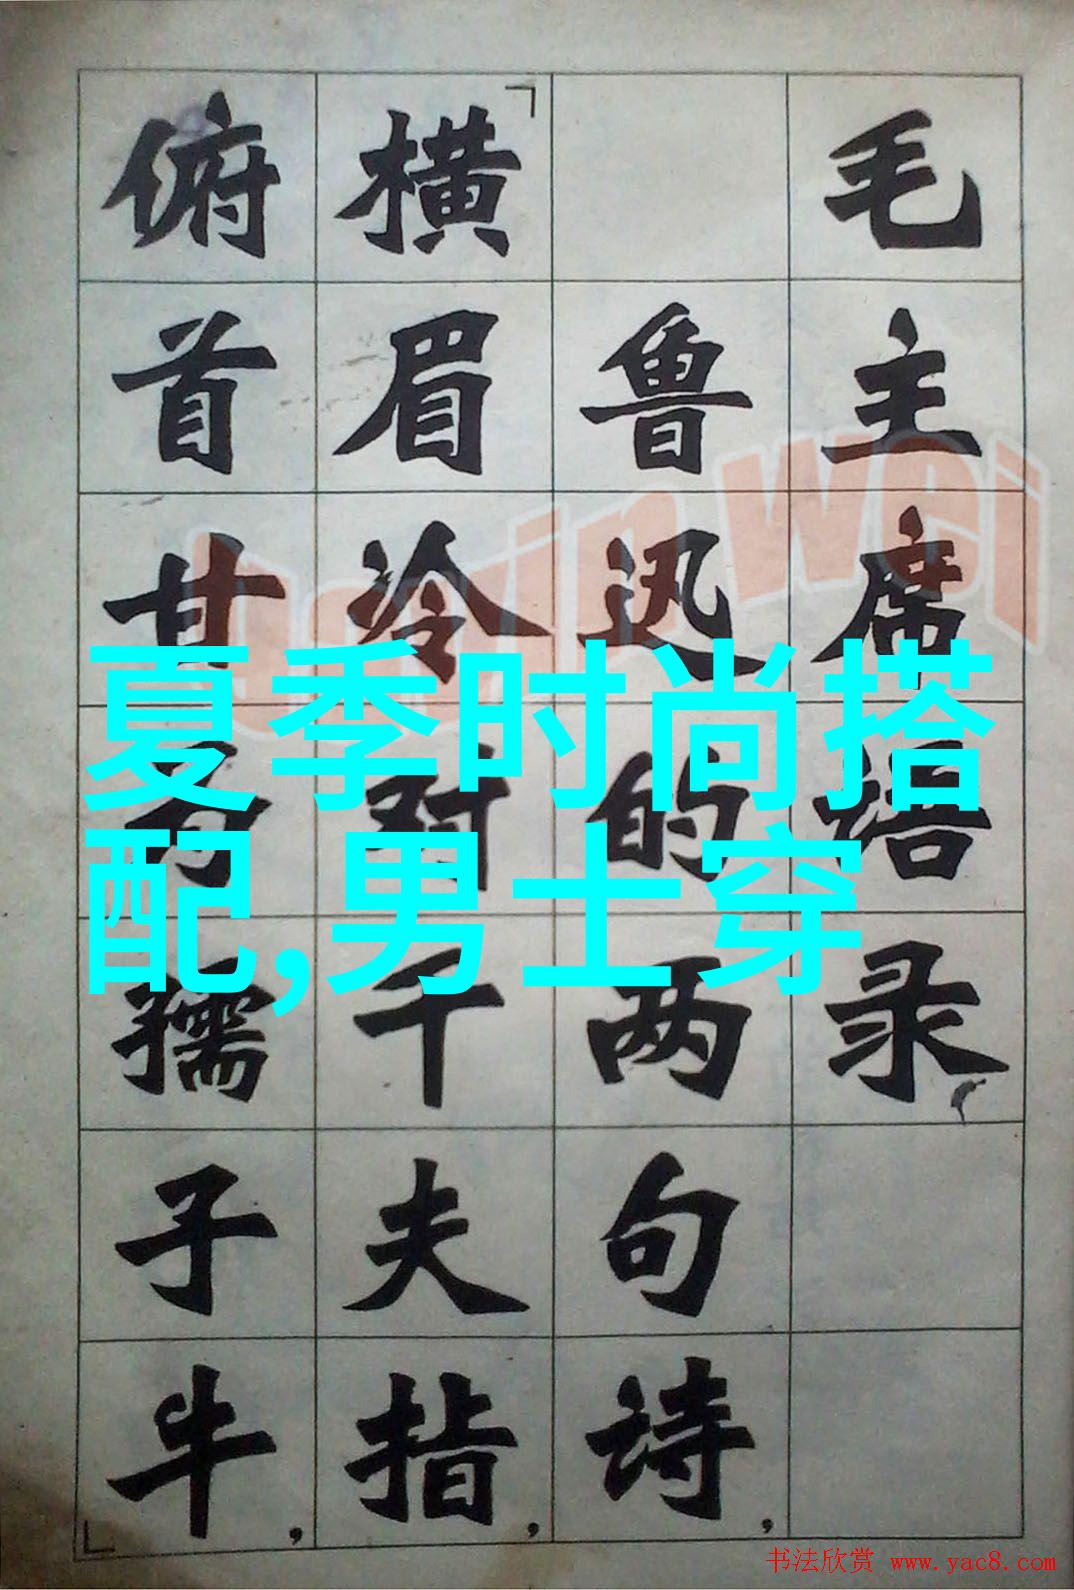 毛主席语录
鲁迅的两句诗，
「横眉冷对千夫指，
俯首甘为孺子牛，」
夏季时尚搭
配,男士穿
书法欣赏 www.yac8.com